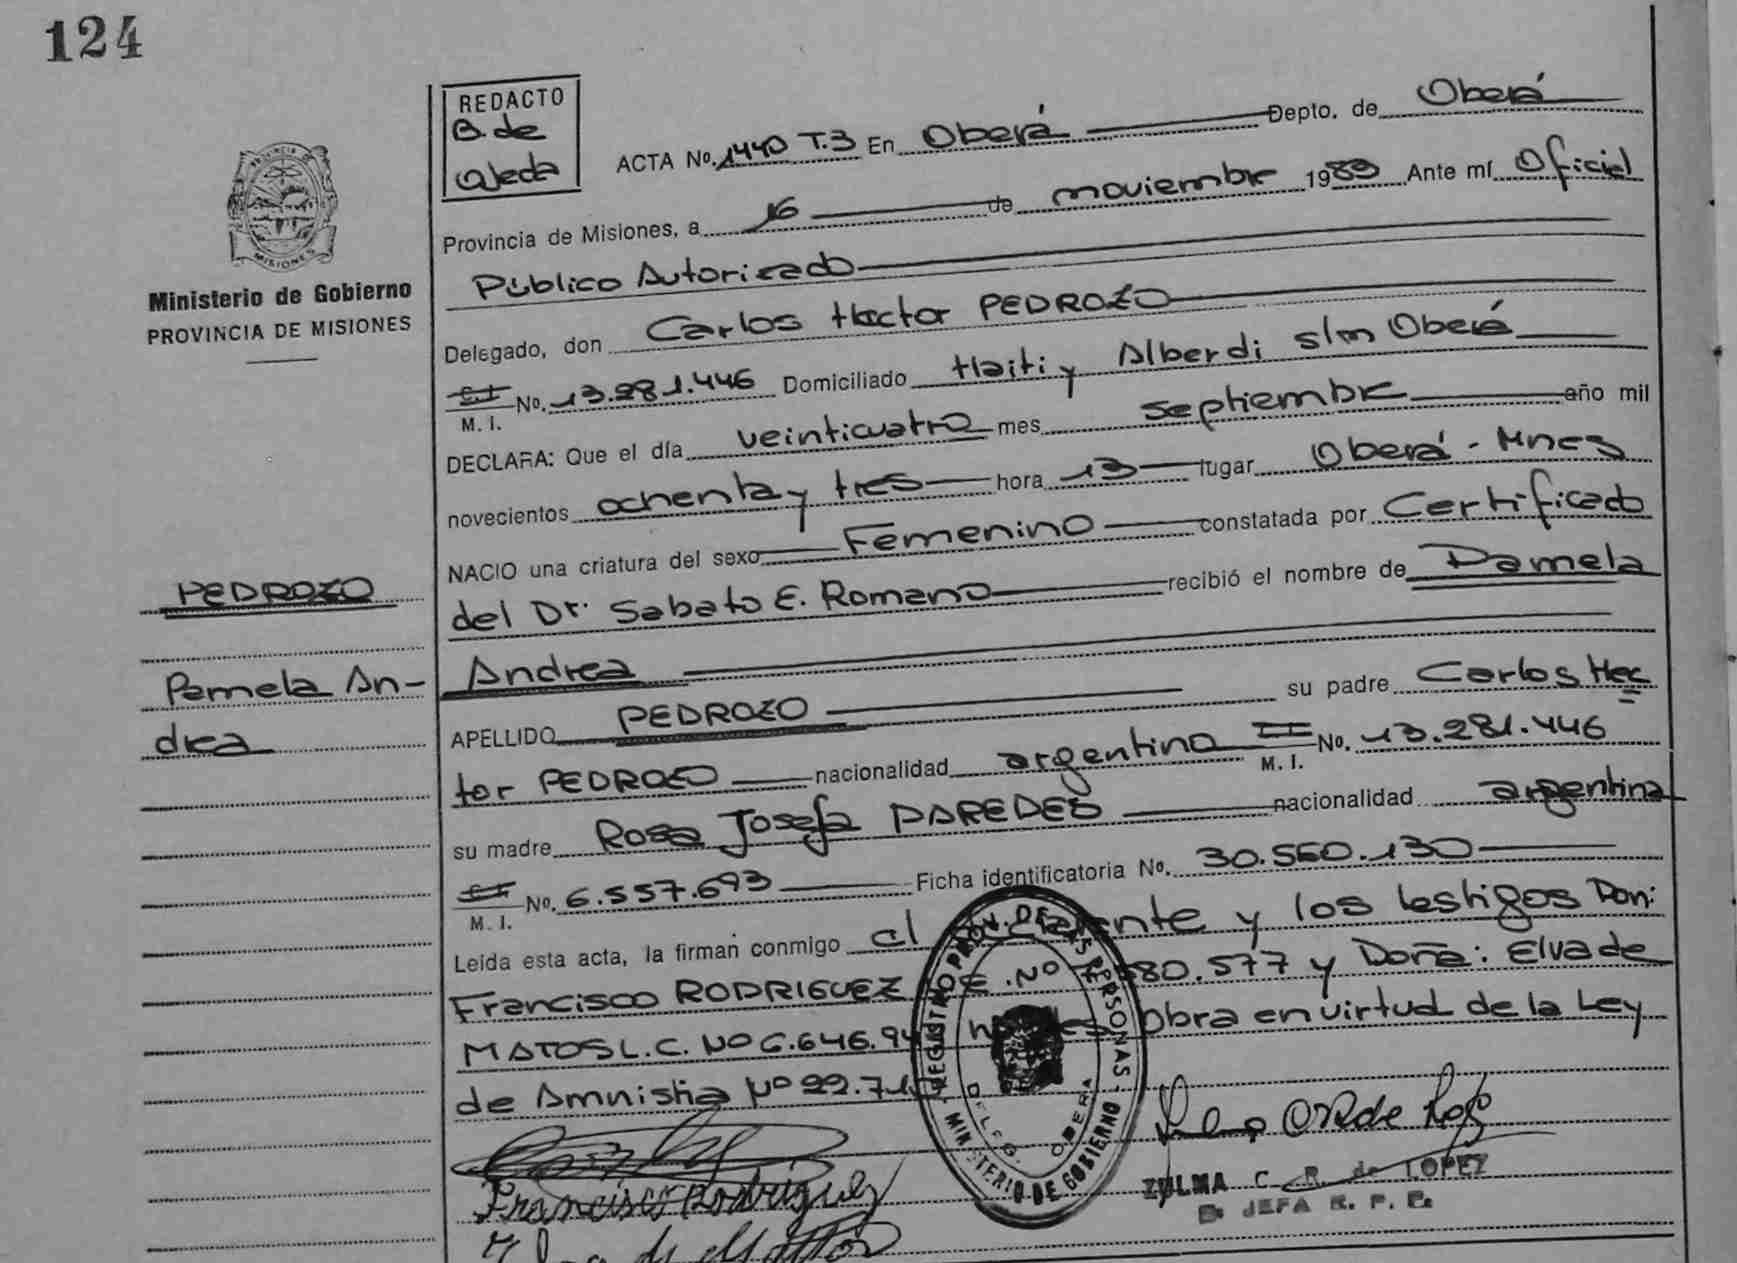 124
REDACTO
B. de
Ojeda
ACTA No. 1440 T.3 En Oberá Depto. de Oberá
Provincia de Misiones, a 16 de noviembre 1983 Ante mí Oficial
Público Autorizado
Delegado, don Carlos Hector PEDROZO
M. I. No. 13.281.446 Domiciliado Haiti y Alberdi s/n Oberá
DECLARA: Que el día veinticuatro mes septiembre año mil
novecientos ochenta y tres hora 13 lugar Oberá - Mnes
NACIO una criatura del sexo Femenino constatada por Certificado
del Dr. Sabato E. Romano recibió el nombre de Pamela
Andrea
APELLIDO PEDROZO su padre Carlos Hec
tor PEDROZO nacionalidad argentina M. I. No. 13.281.446
su madre Rosa Josefa PAREDES nacionalidad argentina
M. I. No. 6.557.693 Ficha identificatoria No. 30.560.130
Leida esta acta, la firman conmigo el y los testigos Don:
Francisco RODRIGUEZ No 580.577 y Doña: Elva de
MATOS L.C. No 6.646.94 obra en virtud de la Ley
de Amnistia No 22.71
Francisco Rodriguez
ZULMA C. R. de LOPEZ
JEFA R. P. P.
REGISTRO PROV. DE LAS PERSONAS
MINISTERIO DE GOBIERNO
DELEG. OBERA
PROVINCIA DE
MISIONES
Ministerio de Gobierno
PROVINCIA DE MISIONES
PEDROZO
Pamela An-
drea